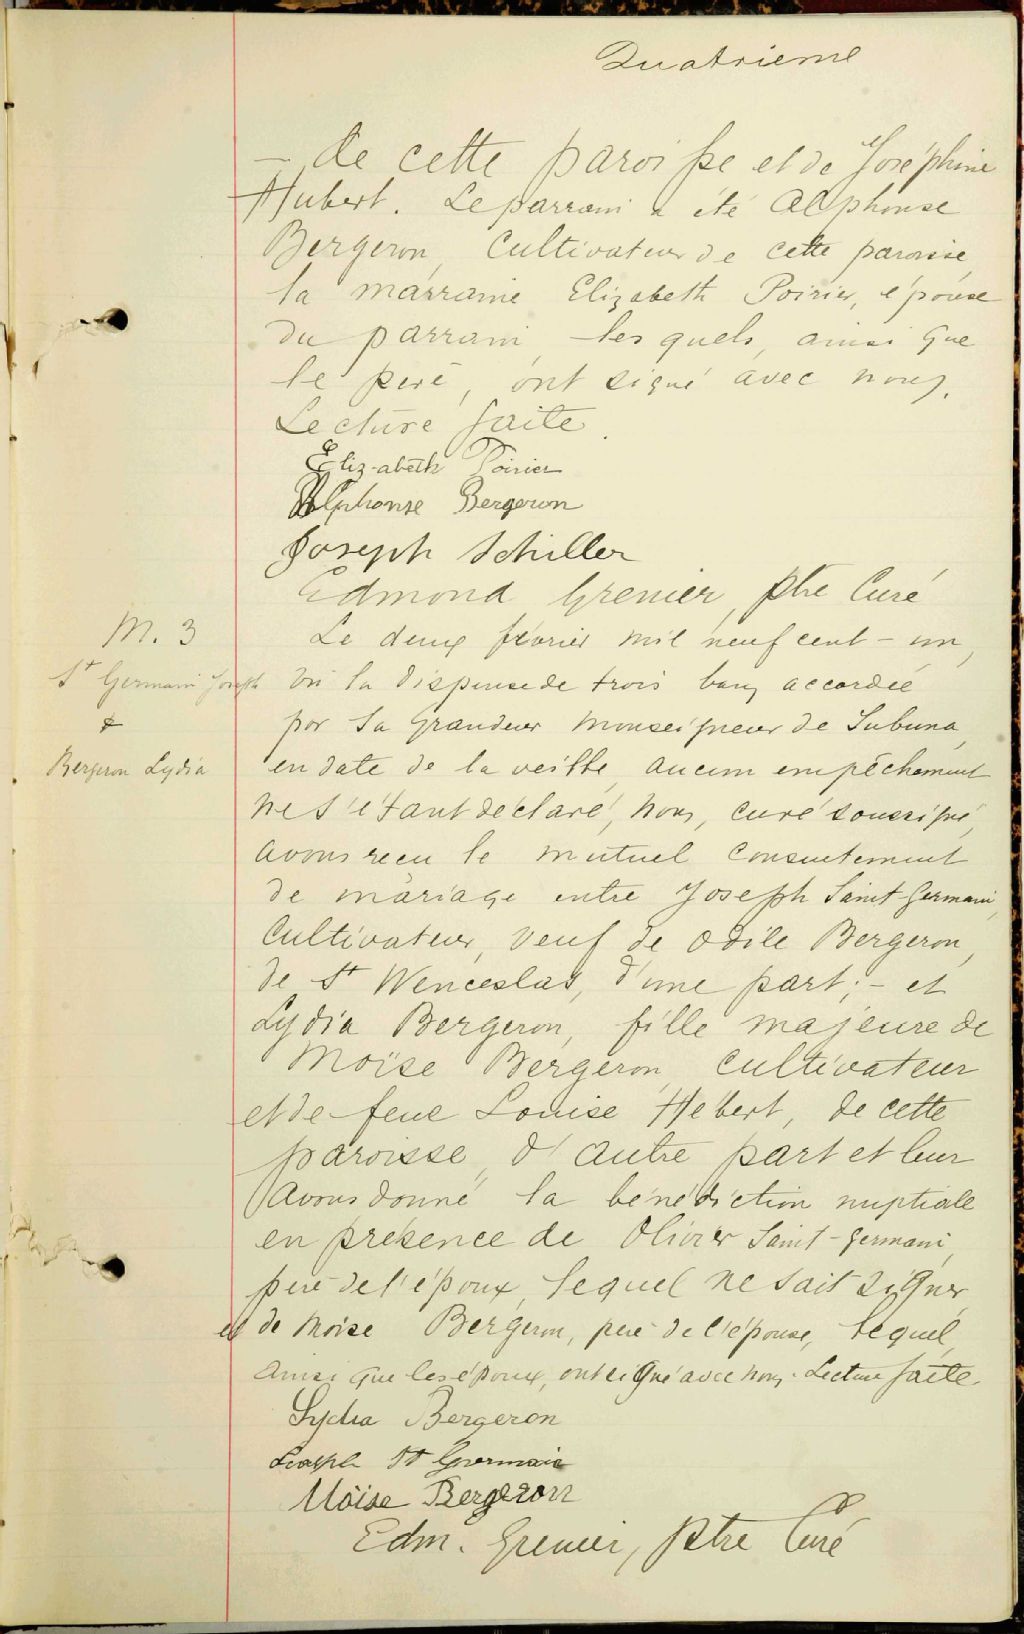 Quatrieme
— de cette paroisse et de Joséphine
Hubert. Le parrain a été Alphonse
Bergeron, Cultivateur de cette paroisse,
la marraine Elizabeth Poirier, épouse
du parrain, lesquels, ainsi que
le père, ont signé avec nous.
Lecture faite.
Elizabeth Poirier
Alphonse Bergeron
Joseph Schiller
Edmond Grenier, Ptre Curé
M. 3
St Germain Joseph
&
Bergeron Lydia
Le deux février mil neuf cent-un,
vu la dispense de trois bans accordée
par Sa Grandeur Monseigneur de Subuna,
en date de la veille, aucun empêchement
ne s'étant déclaré, Nous, curé soussigné,
avons reçu le mutuel consentement
de mariage entre Joseph Saint-Germain,
Cultivateur, veuf de Odile Bergeron,
de St Wenceslas, d'une part; - et
Lydia Bergeron, fille majeure de
Moïse Bergeron, cultivateur
et de feue Louise Hébert, de cette
paroisse, d'autre part et leur
avons donné la bénédiction nuptiale
en présence de Olivier Saint-Germain,
père de l'époux, lequel ne sait signer,
et de Moïse Bergeron, père de l'épouse, lequel,
ainsi que les époux, ont signé avec nous. Lecture faite.
Lydia Bergeron
Joseph St Germain
Moise Bergeron
Edm. Grenier, Ptre Curé